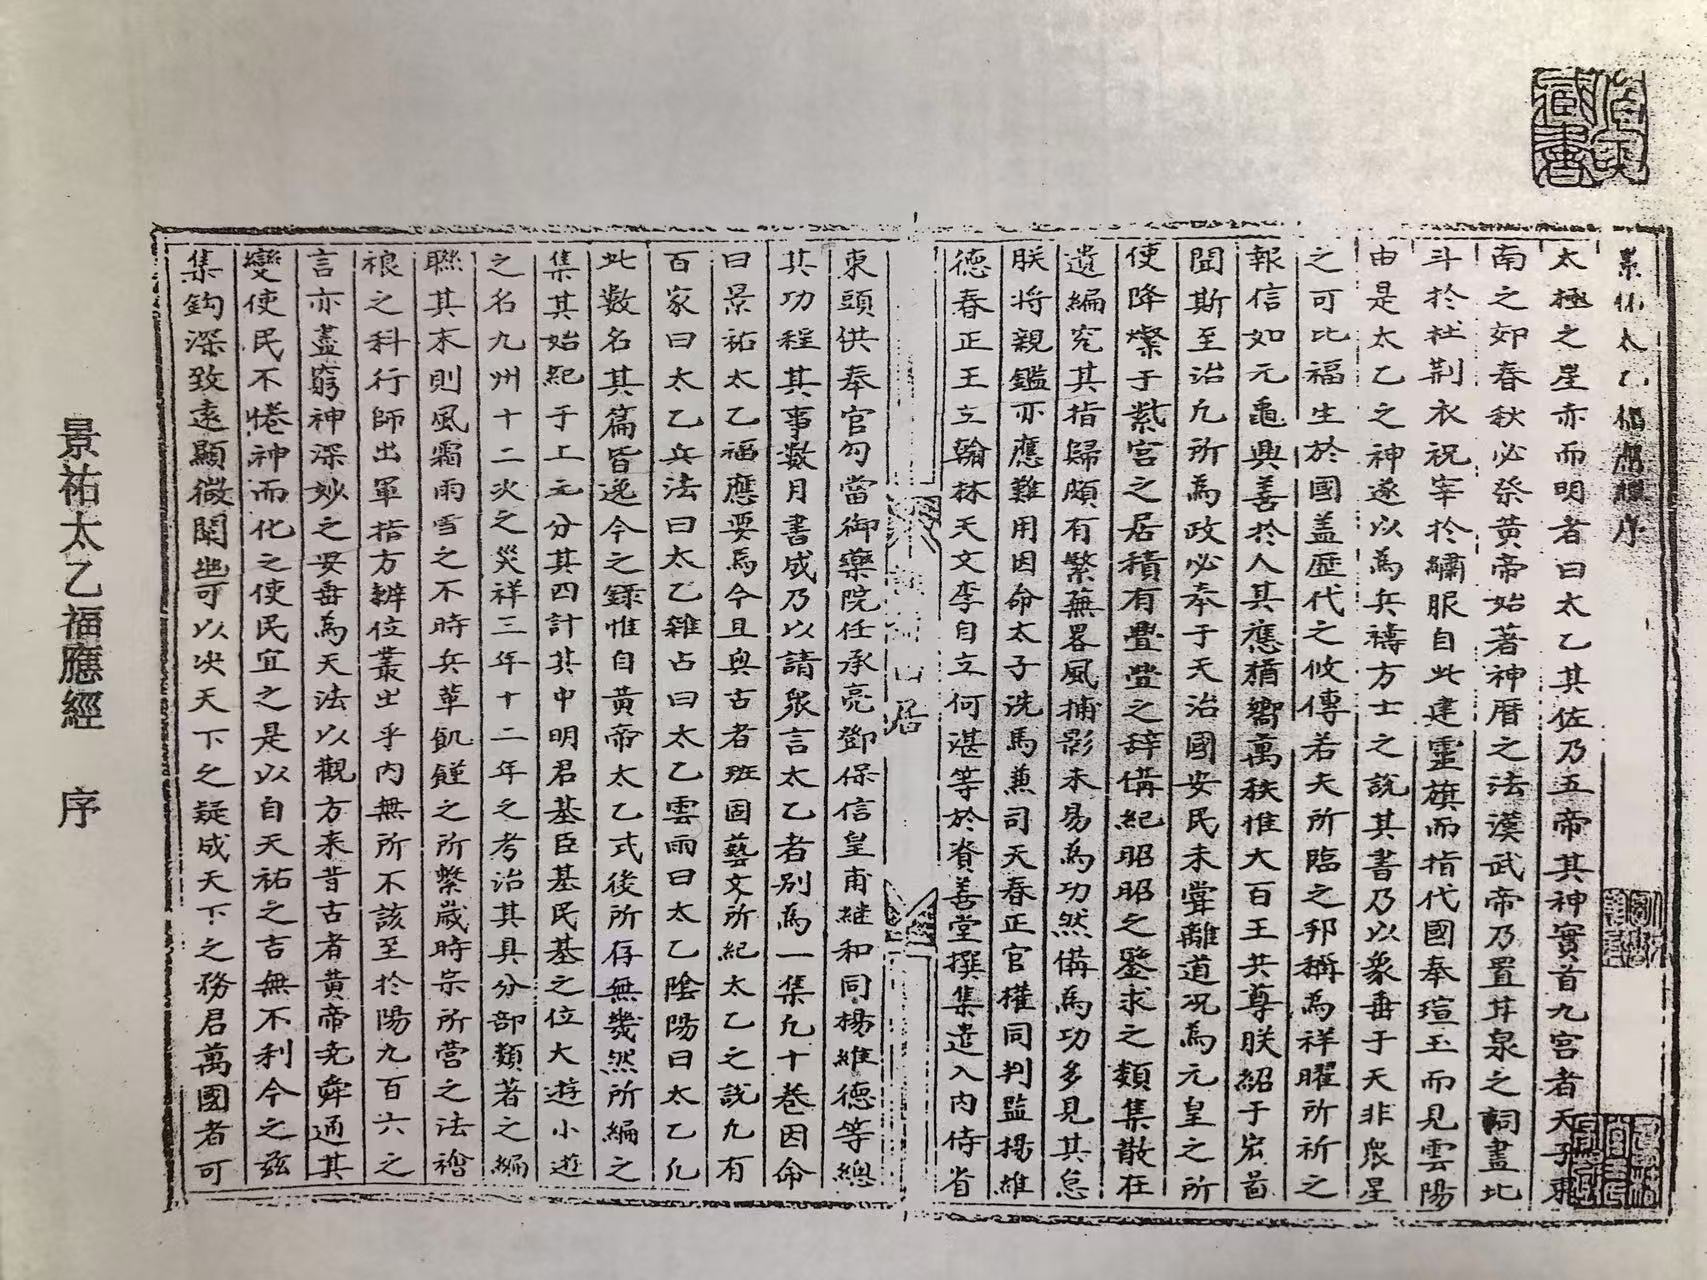 景祐太乙福應經序
太極之星亦而明者曰太乙其佐乃五帝其神實首九宮者天子東
南之郊春秋必祭黃帝始著神曆之法漢武帝乃置甘泉之祠畫北
斗於牡荆衣祝宰於繡服自此建靈旗而指代國奉瑄玉而見雲陽
由是太乙之神遂以為兵禱方士之說其書乃以象垂于天非衆星
之可比福生於國盖歷代之攸傳若夫所臨之邦稱為祥曜所祈之
報信如元龜興善於人其應猶嚮萬秩惟大百王共尊朕紹于宏啚
聞斯至治凢所為政必本于天治國安民未甞離道况為元皇之所
使降燦于紫宮之居積有疊疊之辞備紀昭昭之鑒求之類集散在
遺編究其指歸頗有繁蕪畧風捕影本易為功然備為功多見其怠
朕將親鑑亦應難用因命太子洗馬兼司天春正官權同判監楊維
德春正王立翰林天文李自立何湛等於資善堂撰集遣入内侍省
東頭供奉官勾當御藥院任承亮鄧保信皇甫継和同楊維德等緫
其功程其事數月書成乃以請衆言太乙者別為一集凢十巻因命
曰景祐太乙福應要焉今且與古者班固藝文所紀太乙之說九有
百家曰太乙兵法曰太乙雜占曰太乙雲雨曰太乙陰陽曰太乙凢
此數名其篇皆逸今之錄惟自黃帝太乙式後所存無幾然所編之
集其始紀于上元分其四計其中明君基臣基民基之位大遊小遊
之名九州十二次之災祥三年十二年之考治其具分部類著之編
聯其末則風霜雨雪之不時兵革飢饉之所繫歲時宗所营之法禬
禳之科行師出軍指方辦位叢出乎内無所不該至於陽九百六之
言亦盡窮神深妙之要垂為天法以觀方来昔古者黃帝尭舜通其
變使民不惓神而化之使民宜之是以自天祐之吉無不利今之兹
集鈎深致逺顯微闡幽可以决天下之疑成天下之務君萬國者可
景祐太乙福應經 序